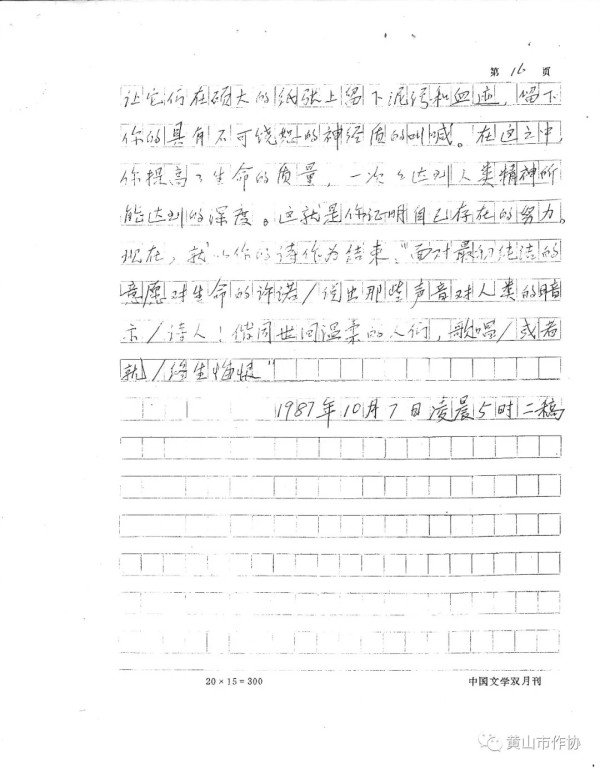 第 16 页
让它们在硕大的纸张上留下泥污和血迹，留下
你的具有不可饶恕的神经质的叫喊。在这之中，
你提高了生命的质量，一次次达到人类精神所
能达到的深度。这就是你证明自己存在的努力。
现在，就以你的诗作为结束："面对最初纯洁的
意愿对生命的许诺/说出那些声音对人类的暗
示/诗人！偕同世间温柔的人们，歌唱/或者
就/终生悔恨"
1987年10月7日凌晨5时二稿
20×15=300
中国文学双月刊
黄山市作协